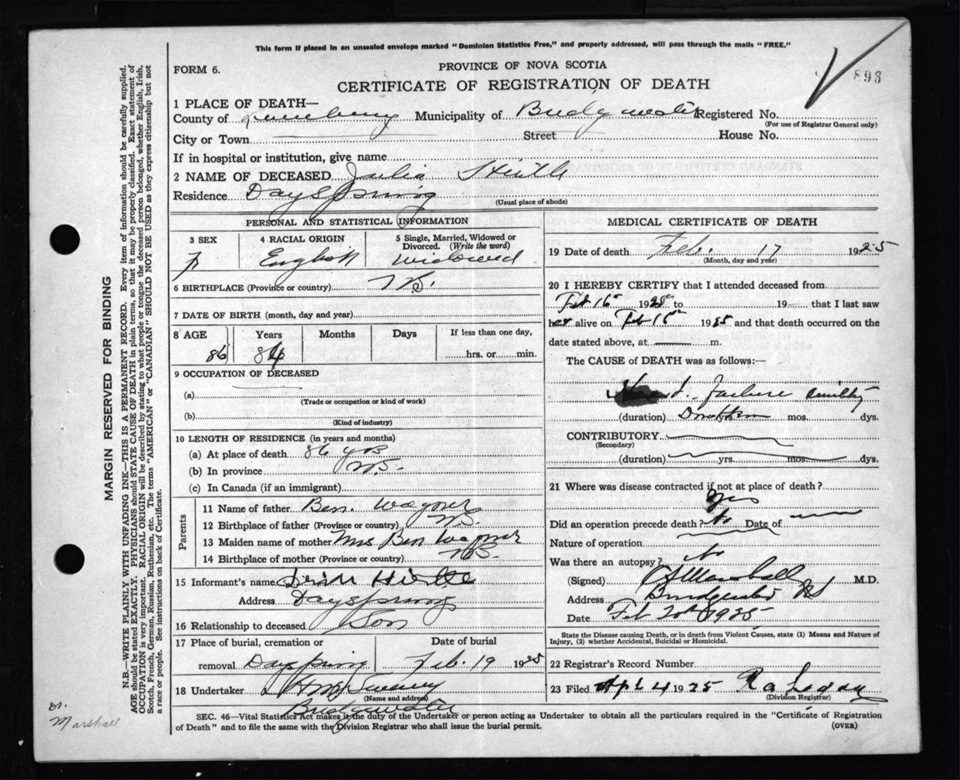 This form if placed in an unsealed envelope marked "Dominion Statistics Free," and properly addressed, will pass through the mails "FREE."
FORM 6.
PROVINCE OF NOVA SCOTIA
CERTIFICATE OF REGISTRATION OF DEATH
893
1 PLACE OF DEATH—
County of Lunenburg Municipality of Bridgewater Registered No.
(For use of Registrar General only)
City or Town Street House No.
If in hospital or institution, give name
2 NAME OF DECEASED Julia Hirtle
Residence Day Spring
(Usual place of abode)
PERSONAL AND STATISTICAL INFORMATION
3 SEX 4 RACIAL ORIGIN 5 Single, Married, Widowed or Divorced. (Write the word)
F English Widowed
6 BIRTHPLACE (Province or country) N.S.
7 DATE OF BIRTH (month, day and year)
8 AGE Years Months Days If less than one day,
86 84 hrs. or min.
9 OCCUPATION OF DECEASED
(a)
(Trade or occupation or kind of work)
(b)
(Kind of industry)
10 LENGTH OF RESIDENCE (in years and months)
(a) At place of death 86 yrs
(b) In province N.S.
(c) In Canada (if an immigrant)
Parents
11 Name of father Ben. Wagner
12 Birthplace of father (Province or country) N.S.
13 Maiden name of mother Mrs Ben Wagner
14 Birthplace of mother (Province or country) N.S.
15 Informant's name Hirtle
Address Day Spring
16 Relationship to deceased Son
17 Place of burial, cremation or Date of burial
removal Day Spring Feb. 19 1925
18 Undertaker
(Name and address)
Bridgewater
MEDICAL CERTIFICATE OF DEATH
19 Date of death Feb. 17 1925
(Month, day and year)
20 I HEREBY CERTIFY that I attended deceased from
Feb 16th 1925 to 19 that I last saw
her alive on Feb 1925 and that death occurred on the
date stated above, at m.
The CAUSE of DEATH was as follows:—
Failure Senility
(duration) mos. dys.
CONTRIBUTORY
(Secondary)
(duration) yrs. mos. dys.
21 Where was disease contracted if not at place of death?
Did an operation precede death? No Date of
Nature of operation
Was there an autopsy? No
(Signed) Marshall M.D.
Address Bridgewater NS
Date Feb 20th 1925
State the Disease causing Death, or in death from Violent Causes, state (1) Means and Nature of Injury, (2) whether Accidental, Suicidal or Homicidal.
22 Registrar's Record Number
23 Filed Apl 4 1925
(Division Registrar)
SEC. 46—Vital Statistics Act makes it the duty of the Undertaker or person acting as Undertaker to obtain all the particulars required in the "Certificate of Registration
of Death" and to file the same with the Division Registrar who shall issue the burial permit. (OVER)
MARGIN RESERVED FOR BINDING
N.B.—WRITE PLAINLY WITH UNFADING INK—THIS IS A PERMANENT RECORD. Every item of information should be carefully supplied.
AGE should be stated EXACTLY. PHYSICIANS should STATE CAUSE OF DEATH in plain terms, so that it may be properly classified. Exact statement of
OCCUPATION is very important. RACIAL ORIGIN will be described by stating to what people or tongue the deceased person belonged, whether English, Irish,
Scotch, French, German, Russian, Ruthenian, etc. The terms "AMERICAN" or "CANADIAN" SHOULD NOT BE USED as they express citizenship but not
a race or people. See instructions on back of Certificate.
Dr.
Marshall